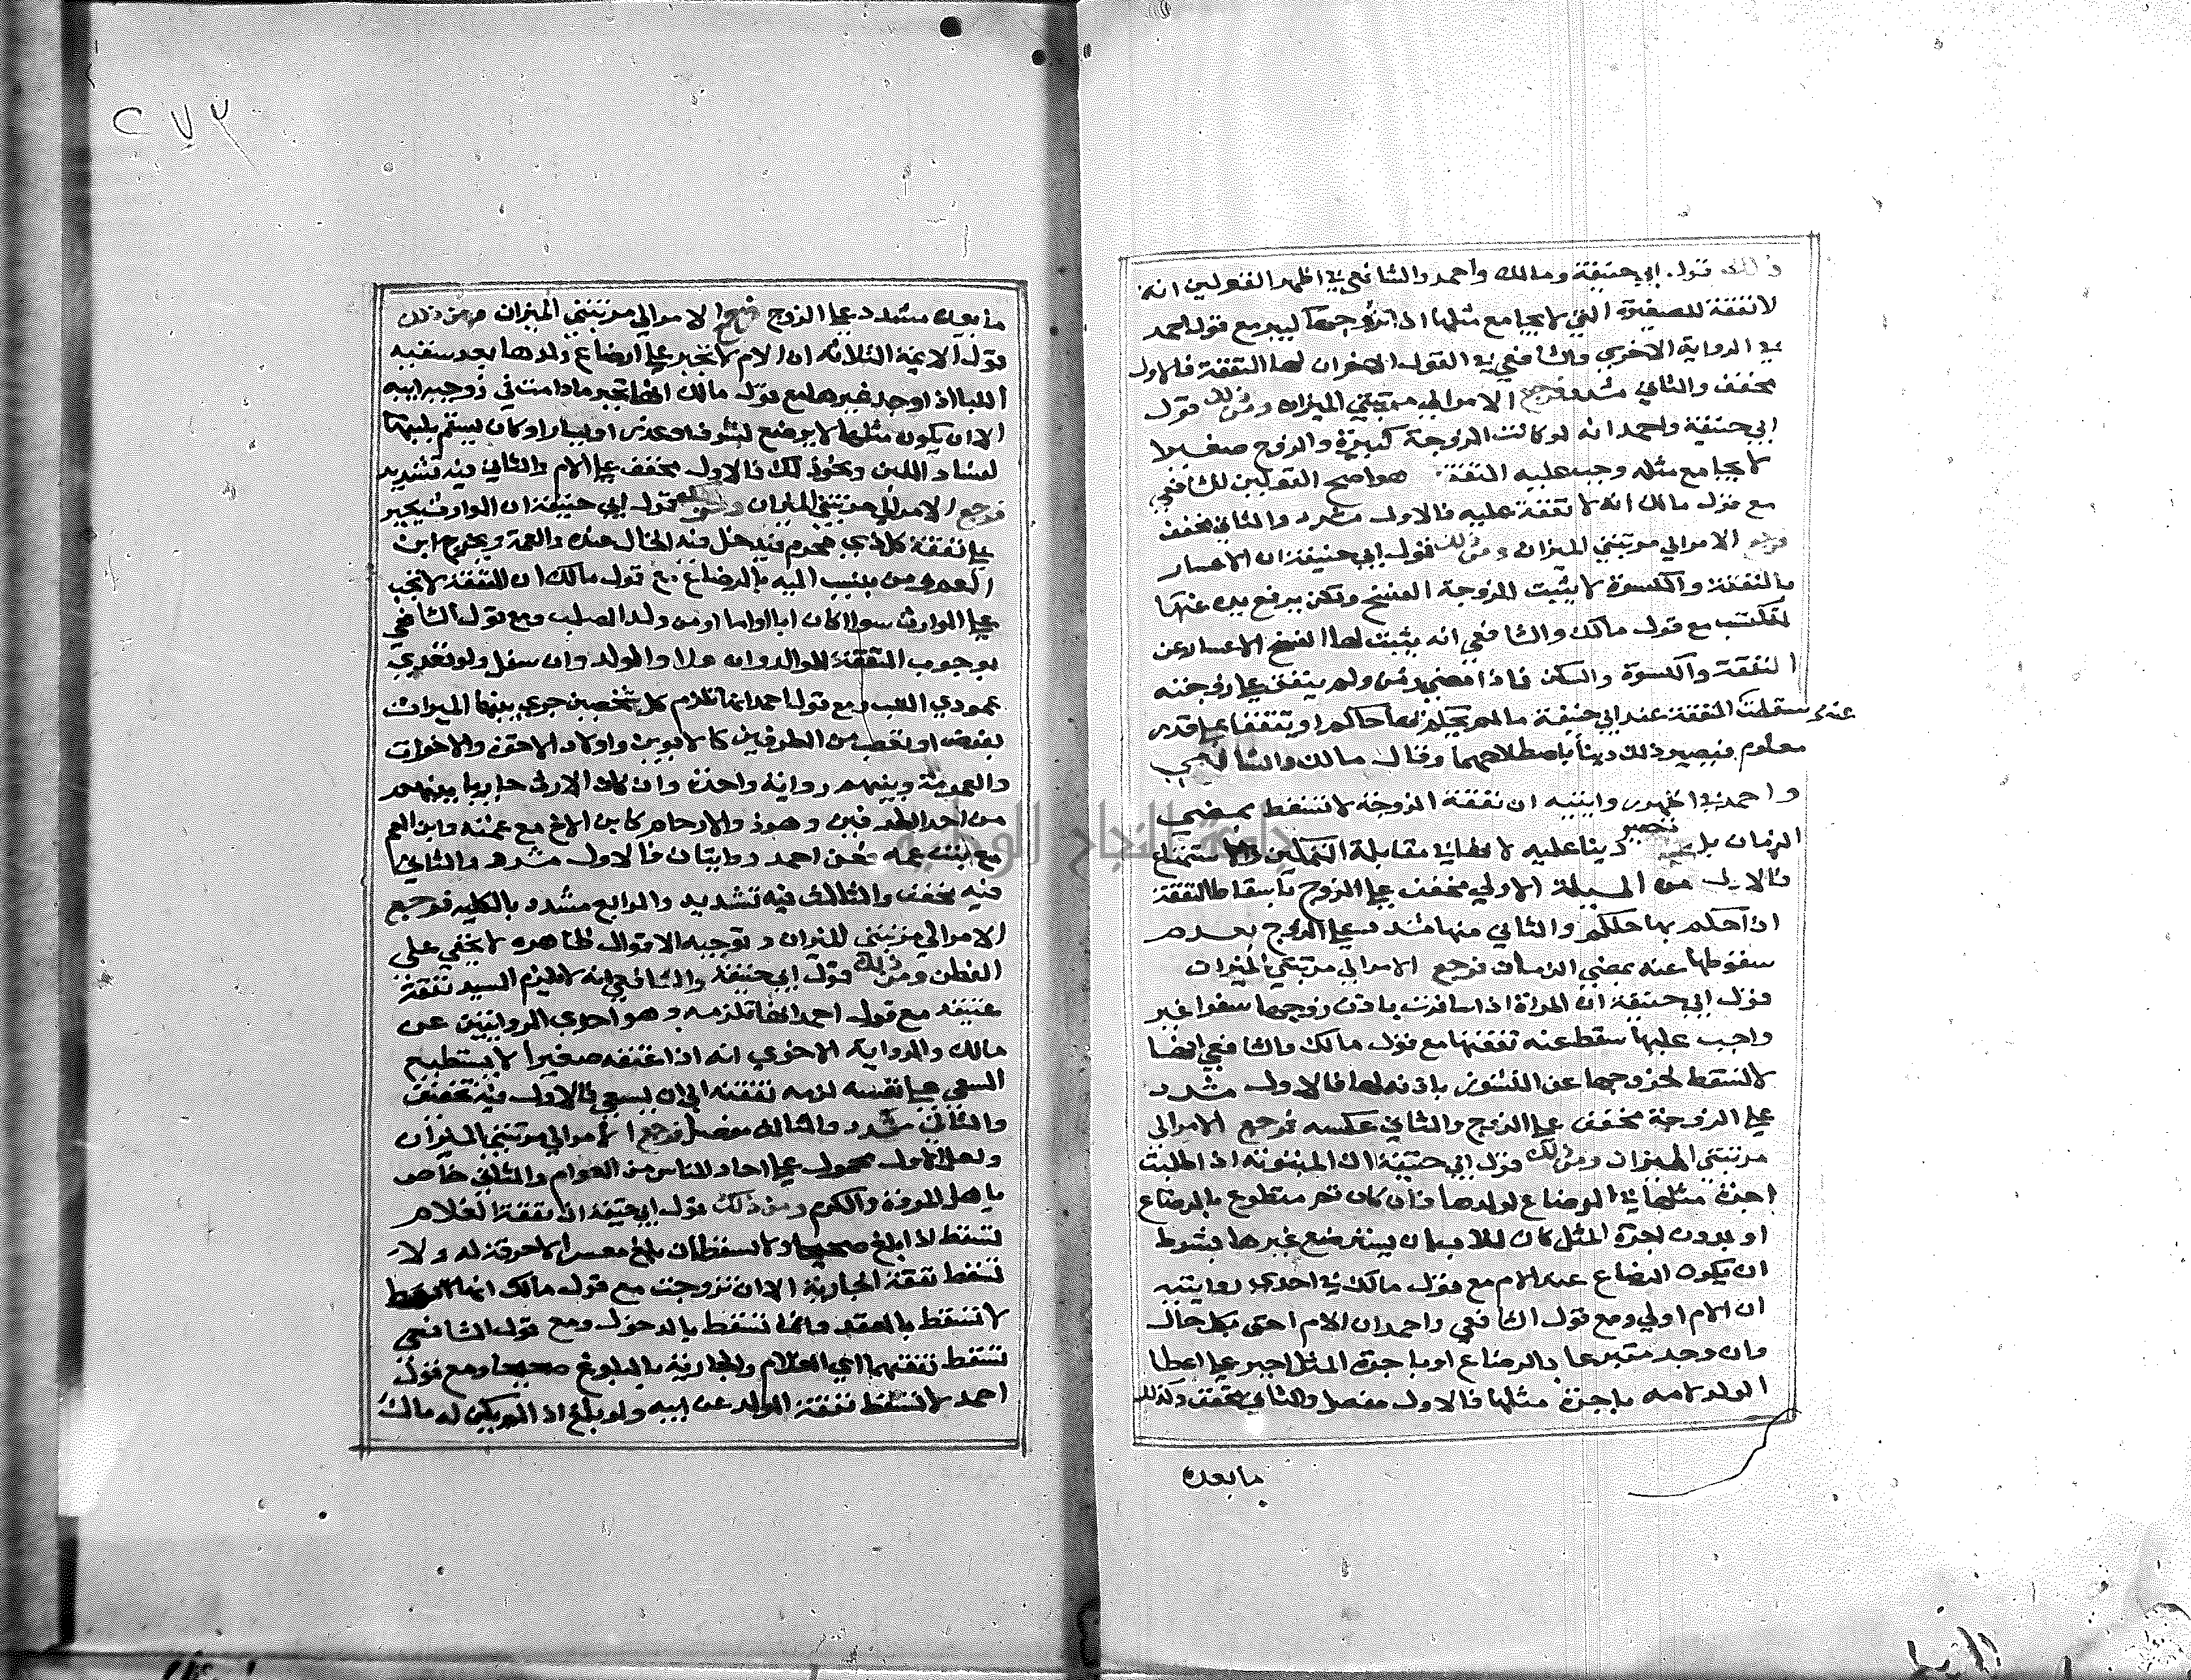 ذلك قول ابي حنيفة ومالك واحمد والشافعي في اظهر القولين انه
لا نفقة للصغيرة التي لا يجامع مثلها اذا تزوجها كبير مع قول احمد
في الرواية الاخري والشافعي في القول الاخر ان لها النفقة فالاول
مخفف والثاني مشدد فرجع الامر الي مرتبتي الميزان ومن ذلك قول
ابي حنيفة واحمد انه لو كانت الزوجة كبيرة والزوج صغيرا
لا يجامع مثله وجب عليه النفقة هو اصح القولين للشافعي
مع قول مالك انه لا نفقة عليه فالاول مشدد والثاني مخفف
فرجع الامر الي مرتبتي الميزان ومن ذلك قول ابي حنيفة ان الاعسار
بالنفقة والكسوة لا يثبت للزوجة الفسخ ولكن يرفع يده عنها
لتكتسب مع قول مالك والشافعي انه يثبت لها الفسخ الاعسار عن
النفقة والكسوة والسكن فاذا مضي زمن ولم ينفق علي زوجته
سقطت النفقة عند ابي حنيفة مالم يحكم بها حاكم او يتفقا علي قدر
معلوم فيصير ذلك دينا باصطلاحهما وقال مالك والشافعي
واحمد في اظهر روايتيه ان نفقة الزوجة لا تسقط بمضي
الزمان بل تصير دينا عليه لانها في مقابلة التمكين والاستمتاع
فالاول من المسيلة الاولي مخفف علي الزوج باسقاط النفقة
اذا حكم بها حاكم والثاني منها مشدد علي الزوج بعدم
سقوطها عنه بمضي الزمان فرجع الامر الي مرتبتي الميزان
قول ابي حنيفة ان المراة اذا سافرت باذن زوجها سفرا غير
واجب عليها سقط عنه نفقتها مع قول مالك والشافعي انها
لا تسقط لخروجها عن النشوز باذنه لها فالاول مشدد
علي الزوجة مخفف علي الزوج والثاني عكسه فرجع الامر الي
مرتبتي الميزان ومن ذلك قول ابي حنيفة ان المبتوتة اذا طلبت
اجرة مثلها في الرضاع لولدها فان كان ثم متطوع بالرضاع
او بدون اجرة المثل كان للاب ان يسترضع غيرها بشرط
ان يكون الرضاع عند الام مع قول مالك في احدي روايتيه
ان الام اولي ومع قول الشافعي واحمد ان الام احق بكل حال
وان وجد متبرعا بالرضاع او باجرة المثل اجبر علي اعطا
الولد لامه باجرة مثلها فالاول مفصل والثاني مخفف وكذلك
مابعده
٢٧٣
مابعده مشدد علي الزوج فرجع الامر الي مرتبتي الميزان ومن ذلك
قول الايمة الثلاثة ان الام لا تجبر علي ارضاع ولدها بعد سقيه
اللبا اذا وجد غيرها مع قول مالك انها تجبر مادامت في زوجية ابيه
الا ان يكون مثلها لا يرضع لشرف او عذر او ليسار او كان يسقم بلبنها
لفساد اللبن ونحو ذلك فالاول مخفف علي الام والثاني فيه تشديد
فرجع الامر الي مرتبتي الميزان ومن ذلك قول ابي حنيفة ان الوارث يجبر
علي نفقة كل ذي محرم فيدخل فيه الخال عنده والعمة ويخرج ابن
العم ومن ينسب اليه بالرضاع مع قول مالك ان النفقة لا تجب
علي الوارث سوا كان ابا او اما او من ولد الصلب ومع قول الشافعي
بوجوب النفقة للوالد وان علا والولد وان سفل ولو تعدي
عمودي النسب ومع قول احمد انها تلزم كل شخصين جري بينهما الميراث
بفرض او تعصيب من الطرفين كالابوين واولاد الاخوة والاخوات
والعمومة وبنيهم رواية واحدة وان كان الارث جاريا بينهم
من احد الطرفين وهو ذو الارحام كابن الاخ مع عمته وابن العم
مع ابنت عمه فعن احمد روايتان فالاول مشدد والثاني
فيه مخفف والثالث فيه تشديد والرابع مشدد بالكلية فرجع
الامر الي مرتبتي الميزان وتوجيه الاقوال ظاهره لا يخفي علي
الفطن ومن ذلك قول ابي حنيفة والشافعي انه لا يلزم السيد نفقة
عتيقه مع قول احمد انها تلزمه وهو احدي الروايتين عن
مالك والرواية الاخري انه اذا عتقه صغيرا لا يستطيع
السعي علي نفسه لزمه نفقته الي ان يسعي فالاول فيه تخفيف
والثاني مشدد والثالث مفصل فرجع الامر الي مرتبتي الميزان
ولعل الاول محمول علي احاد الناس من العوام والثاني خاص
باهل المروة والكرم ومن ذلك قول ابي حنيفة ان نفقة الغلام
تسقط اذا بلغ صحيحا ولا تسقط ان بلغ معسرا لا حرفة له ولا
تسقط نفقة الجارية الا ان تزوجت مع قول مالك انها
لا تسقط بالعقد وانما تسقط بالدخول ومع قول الشافعي
تسقط نفقتهما اي الغلام والجارية بالبلوغ صحيحا ومع قول
احمد لا تسقط نفقة الولد عن ابيه ولو بلغ اذا لم يكن له مال